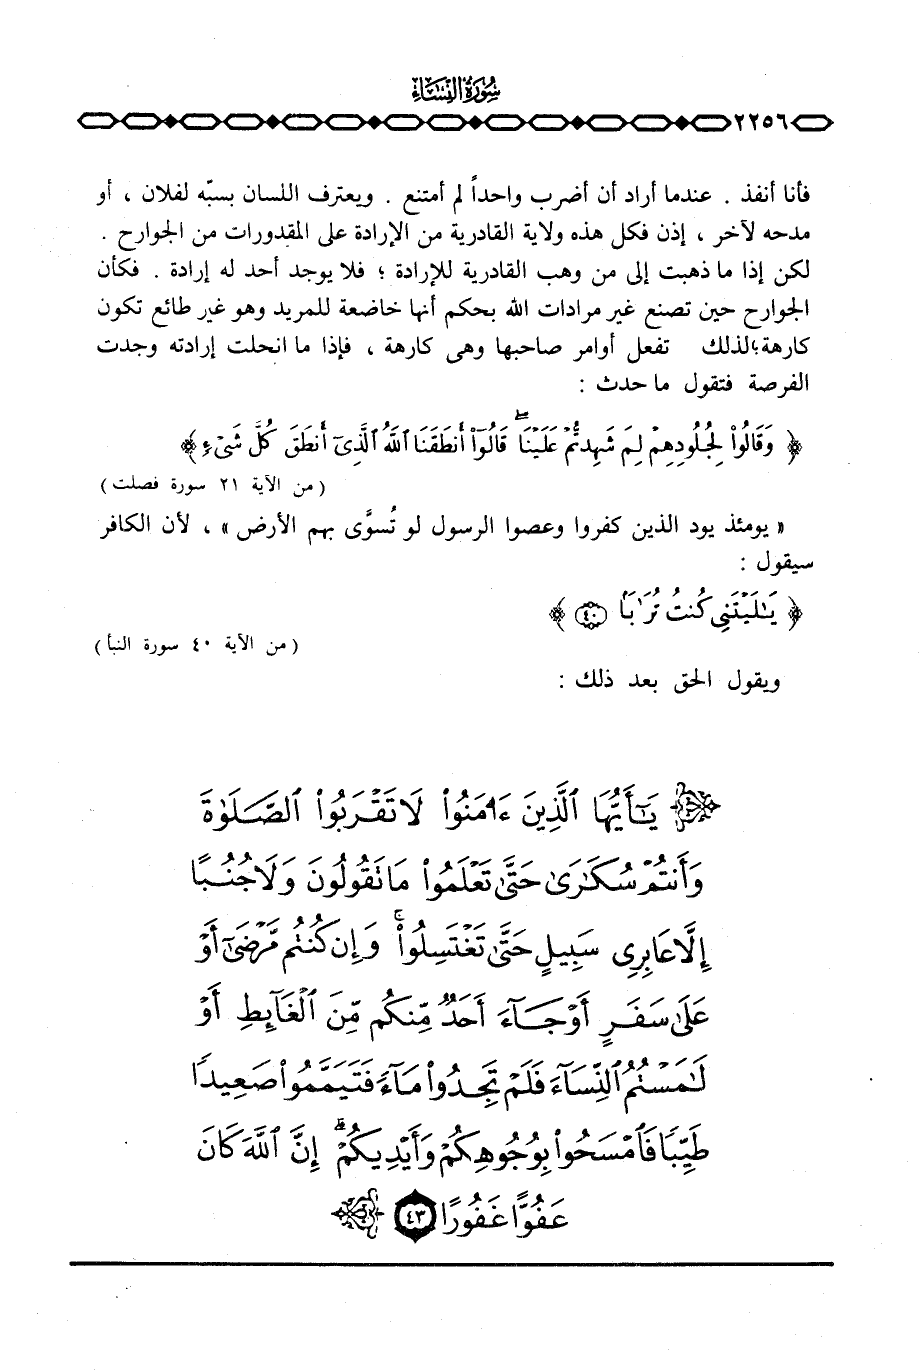 سُورَةُ النِّسَاءِ
٢٢٥٦
فأنا أنفذ . عندما أراد أن أضرب واحداً لم أمتنع . ويعترف اللسان بسبّه لفلان ، أو
مدحه لآخر ، إذن فكل هذه ولاية القادرية من الإرادة على المقدورات من الجوارح .
لكن إذا ما ذهبت إلى من وهب القادرية للإرادة ؛ فلا يوجد أحد له إرادة . فكأن
الجوارح حين تصنع غير مرادات الله بحكم أنها خاضعة للمريد وهو غير طائع تكون
كارهة ؛ لذلك تفعل أوامر صاحبها وهى كارهة ، فإذا ما انحلت إرادته وجدت
الفرصة فتقول ما حدث :
﴿ وَقَالُوا۟ لِجُلُودِهِمْ لِمَ شَهِدتُّمْ عَلَيْنَا ۖ قَالُوٓا۟ أَنطَقَنَا ٱللَّهُ ٱلَّذِىٓ أَنطَقَ كُلَّ شَىْءٍ ﴾
( من الآية ٢١ سورة فصلت )
« يومئذ يود الذين كفروا وعصوا الرسول لو تُسوَّى بهم الأرض » ، لأن الكافر
سيقول :
﴿ يَـٰلَيْتَنِى كُنتُ تُرَٰبًۢا ٤٠ ﴾
( من الآية ٤٠ سورة النبأ )
ويقول الحق بعد ذلك :
﴿ يَـٰٓأَيُّهَا ٱلَّذِينَ ءَامَنُوا۟ لَا تَقْرَبُوا۟ ٱلصَّلَوٰةَ
وَأَنتُمْ سُكَـٰرَىٰ حَتَّىٰ تَعْلَمُوا۟ مَا تَقُولُونَ وَلَا جُنُبًا
إِلَّا عَابِرِى سَبِيلٍ حَتَّىٰ تَغْتَسِلُوا۟ ۚ وَإِن كُنتُم مَّرْضَىٰٓ أَوْ
عَلَىٰ سَفَرٍ أَوْ جَآءَ أَحَدٌ مِّنكُم مِّنَ ٱلْغَآئِطِ أَوْ
لَـٰمَسْتُمُ ٱلنِّسَآءَ فَلَمْ تَجِدُوا۟ مَآءً فَتَيَمَّمُوا۟ صَعِيدًا
طَيِّبًا فَٱمْسَحُوا۟ بِوُجُوهِكُمْ وَأَيْدِيكُمْ ۗ إِنَّ ٱللَّهَ كَانَ
عَفُوًّا غَفُورًا ٤٣ ﴾